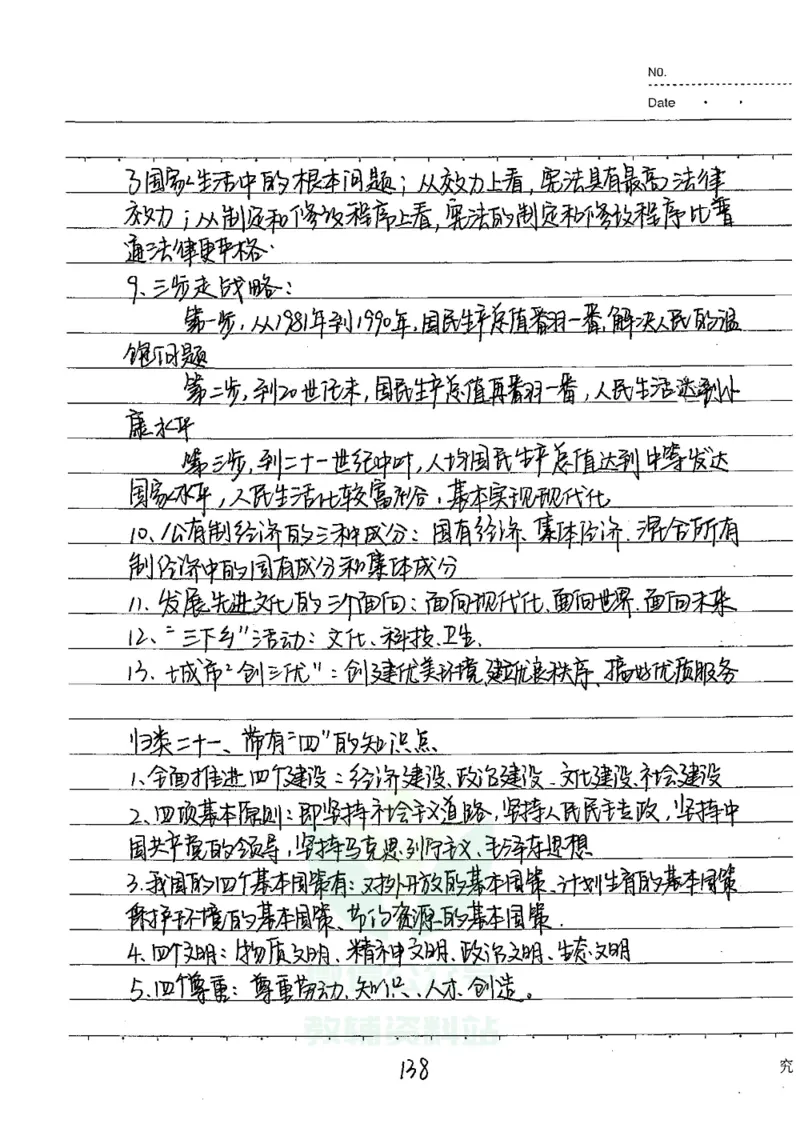 No.
Date
了国家生活中的根本问题；从效力上看，宪法具有最高法律
效力；从制定和修改程序上看，宪法的制定和修改程序比普
通法律更严格.
9、三步走战略：
第一步，从1981年到1990年，国民生产总值翻一番，解决人民的温
饱问题
第二步，到20世纪末，国民生产总值再翻一番，人民生活达到小
康水平
第三步，到二十一世纪中叶，人均国民生产总值达到中等发达
国家水平，人民生活比较富裕，基本实现现代化
10、公有制经济的三种成分：国有经济、集体经济、混合所有
制经济中的国有成分和集体成分
11、发展先进文化的三个面向：面向现代化、面向世界、面向未来
12、“三下乡”活动：文化、科技、卫生、
13、城市“创三优”：创建优美环境、建立优良秩序、搞好优质服务
归类二十一、带有“四”的知识点
1、全面推进四个建设：经济建设、政治建设、文化建设、社会建设
2、四项基本原则：即坚持社会主义道路，坚持人民民主专政，坚持中
国共产党的领导，坚持马克思列宁主义、毛泽东思想
3、我国的四个基本国策有：对外开放的基本国策、计划生育的基本国策
保护环境的基本国策、节约资源的基本国策．
4、四个文明：物质文明、精神文明、政治文明、生态文明
5、四个尊重：尊重劳动、知识、人才、创造。
教辅资料站
138
究